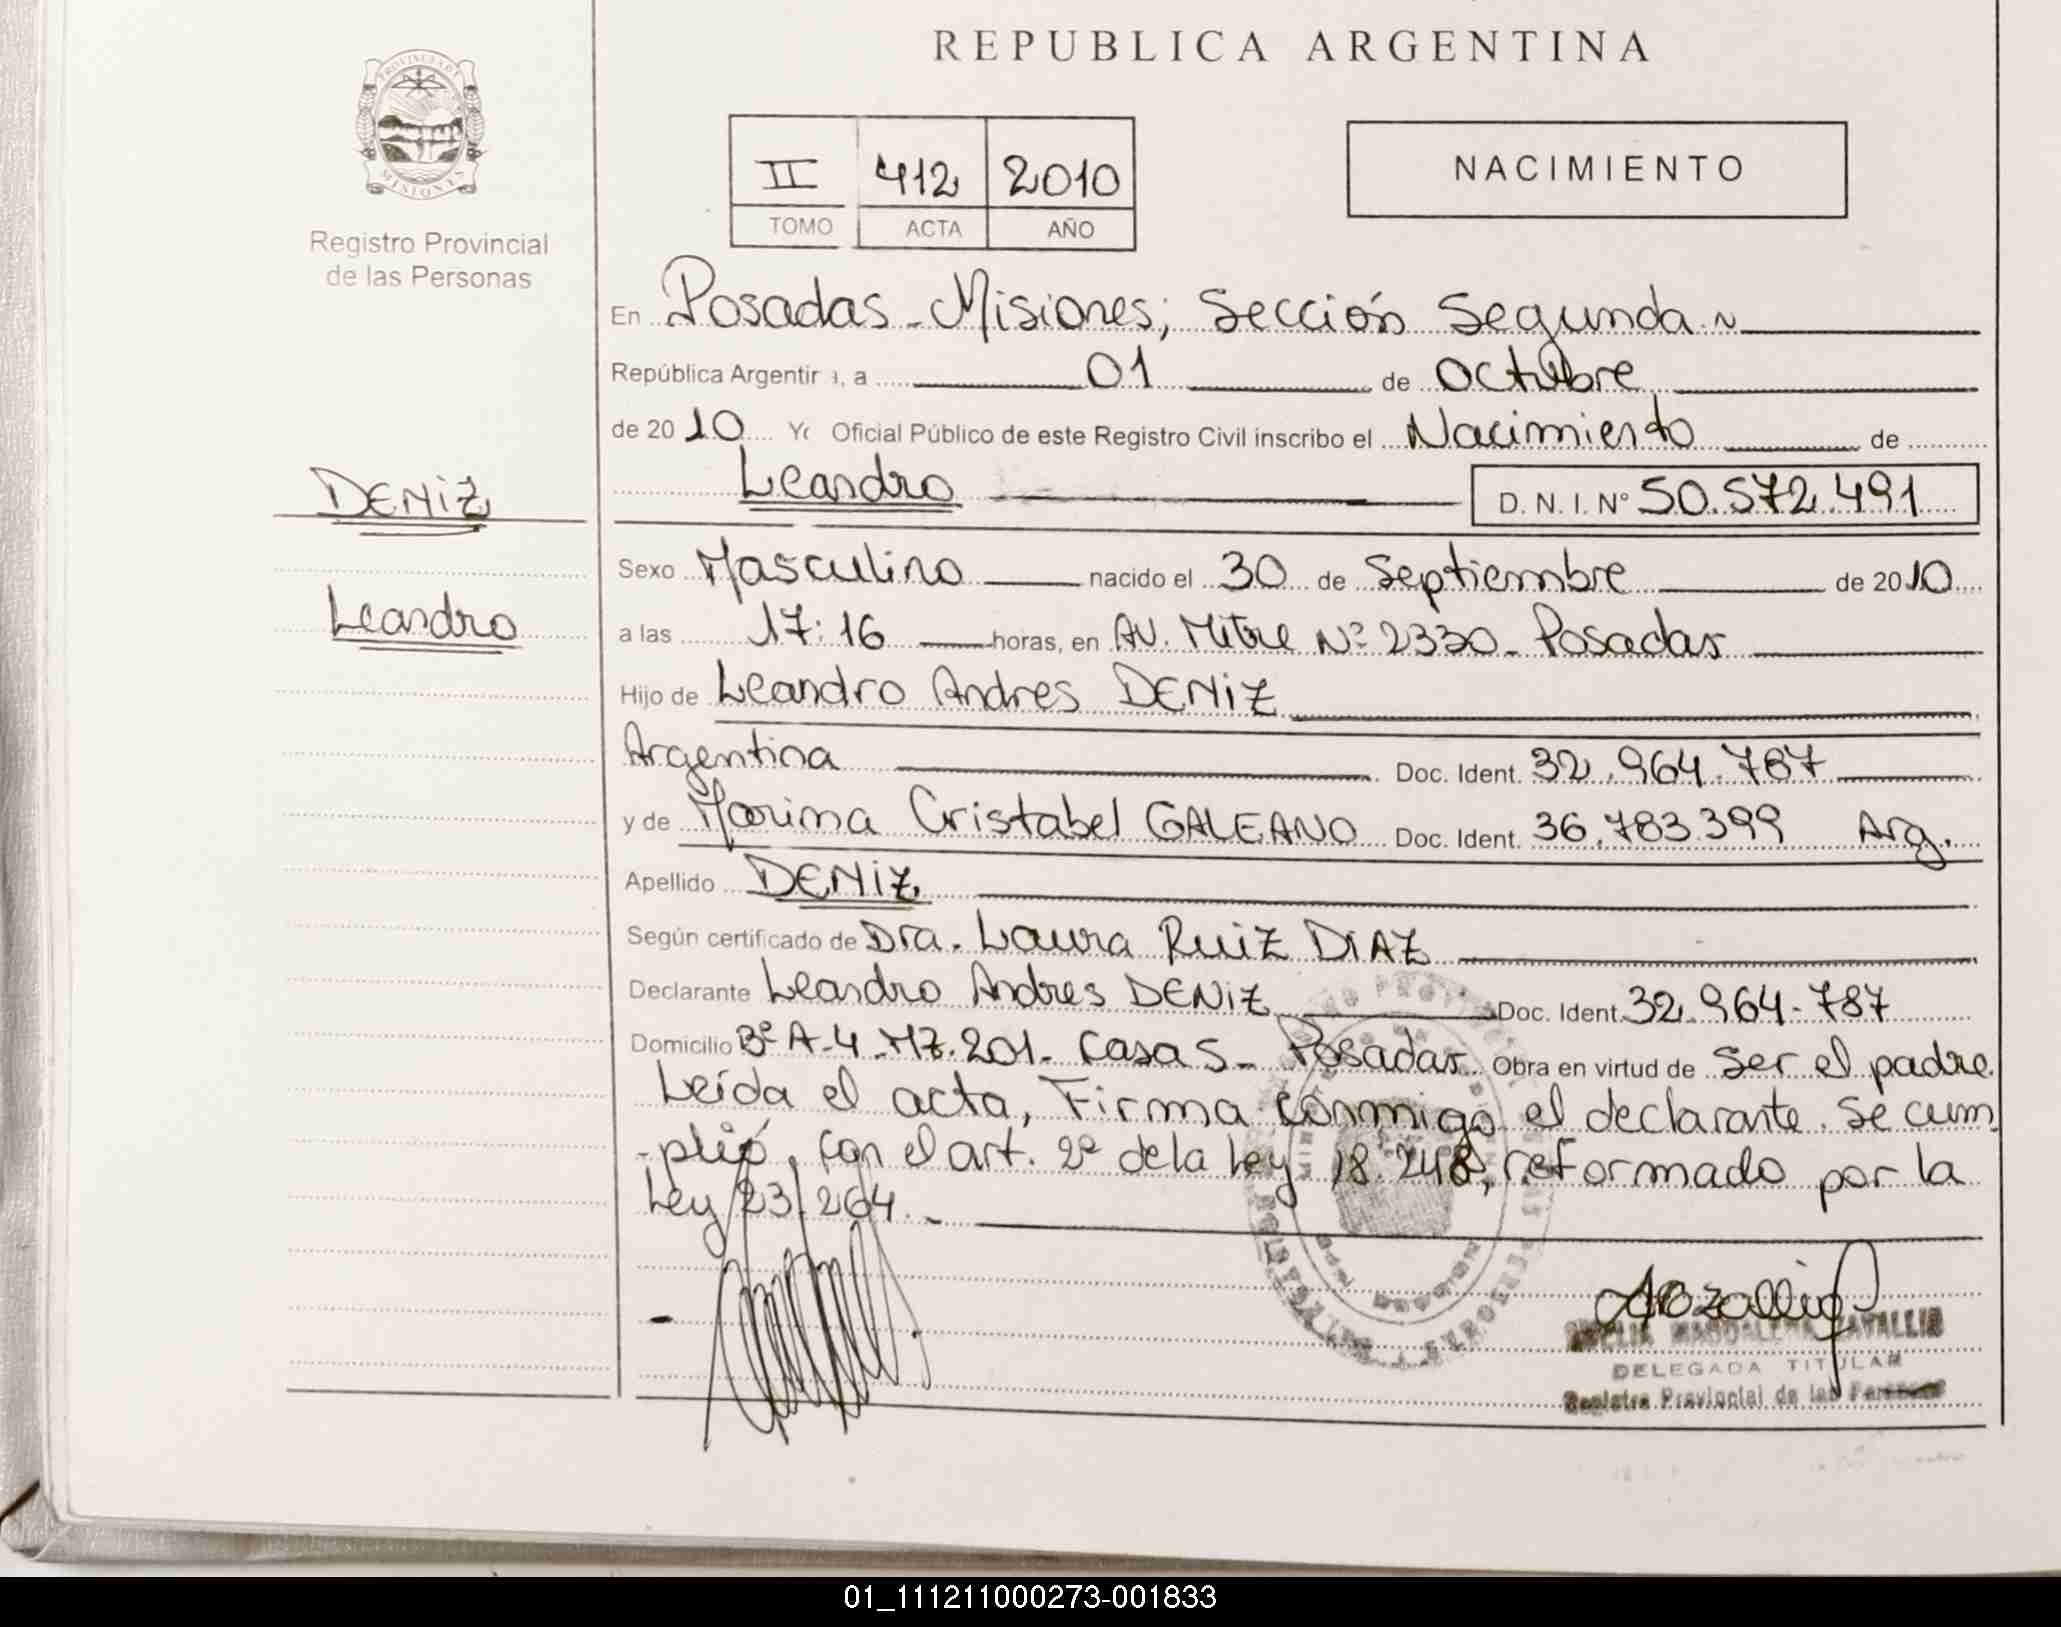 PROVINCIA DE
MISIONES
Registro Provincial
de las Personas
DENiZ
Leandro
REPUBLICA ARGENTINA
II 412 2010
TOMO ACTA AÑO
NACIMIENTO
En Posadas - Misiones; Sección Segunda. ~
República Argentina, a 01 de Octubre
de 2010 Yo Oficial Público de este Registro Civil inscribo el Nacimiento de
Leandro D. N. I. Nº 50.572.491
Sexo Masculino nacido el 30 de Septiembre de 2010
a las 17:16 horas, en AV. Mitre Nº 2330 - Posadas
Hijo de Leandro Andres DENiZ
Argentina Doc. Ident. 32.964.787
y de Marina Cristabel GALEANO Doc. Ident. 36.783.399 Arg.
Apellido DENiZ
Según certificado de Dra. Laura RUIZ DIAZ
Declarante Leandro Andres DENiZ Doc. Ident. 32.964.787
Domicilio Bº A-4 - MZ. 201 - Casa 5 - Posadas Obra en virtud de Ser el padre.
Leída el acta, Firma conmigo el declarante. Se cum
-plió, con el art. 2º de la Ley 18.248, reformado por la
Ley 23/264. -
MAGDALENA
DELEGADA TITULAR
Registro Provincial de las Personas
01_111211000273-001833